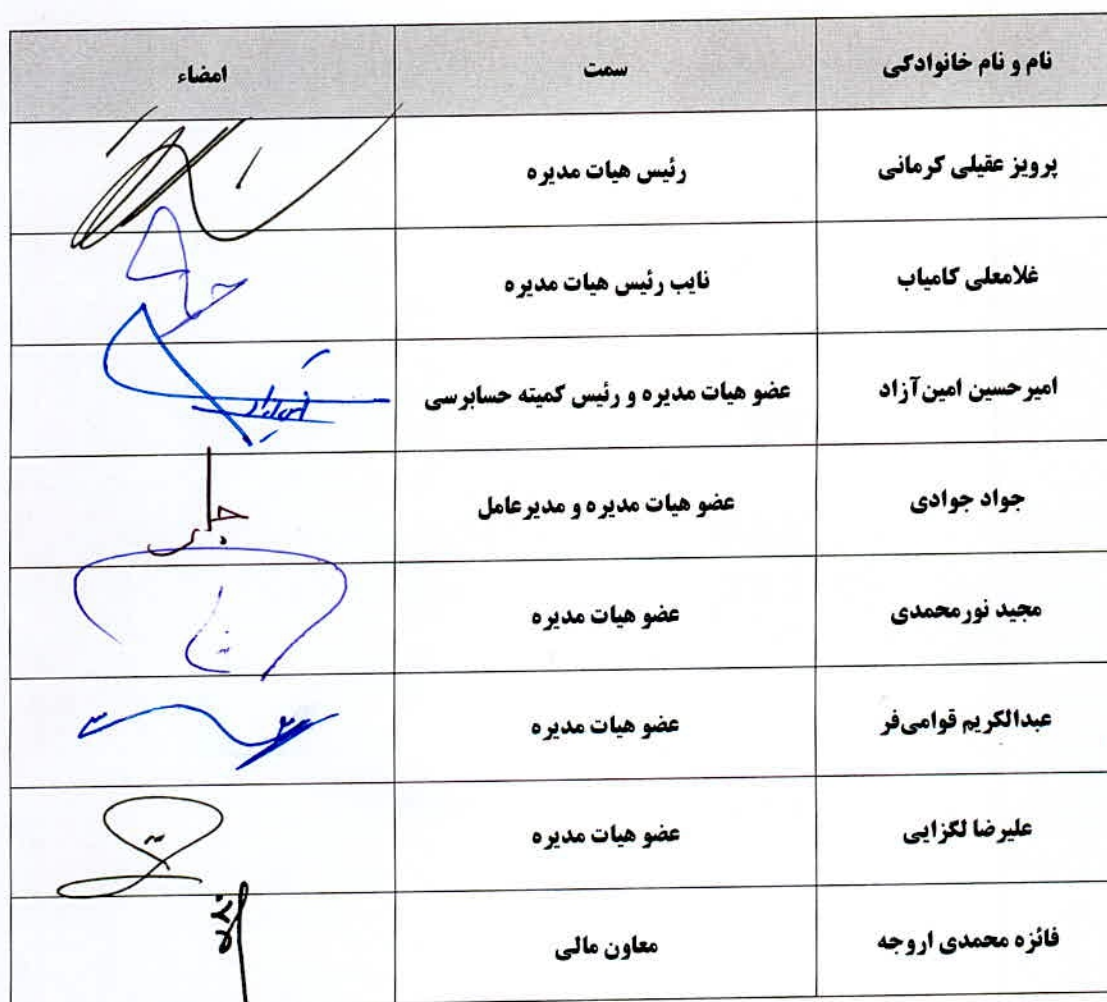 نام و نام خانوادگی سمت امضاء
پرویز عقیلی کرمانی رئیس هیات مدیره
غلامعلی کامیاب نایب رئیس هیات مدیره
امیرحسین امین‌آزاد عضو هیات مدیره و رئیس کمیته حسابرسی
جواد جوادی عضو هیات مدیره و مدیرعامل
مجید نورمحمدی عضو هیات مدیره
عبدالکریم قوامی‌فر عضو هیات مدیره
علیرضا لگزایی عضو هیات مدیره
فائزه محمدی اروجه معاون مالی